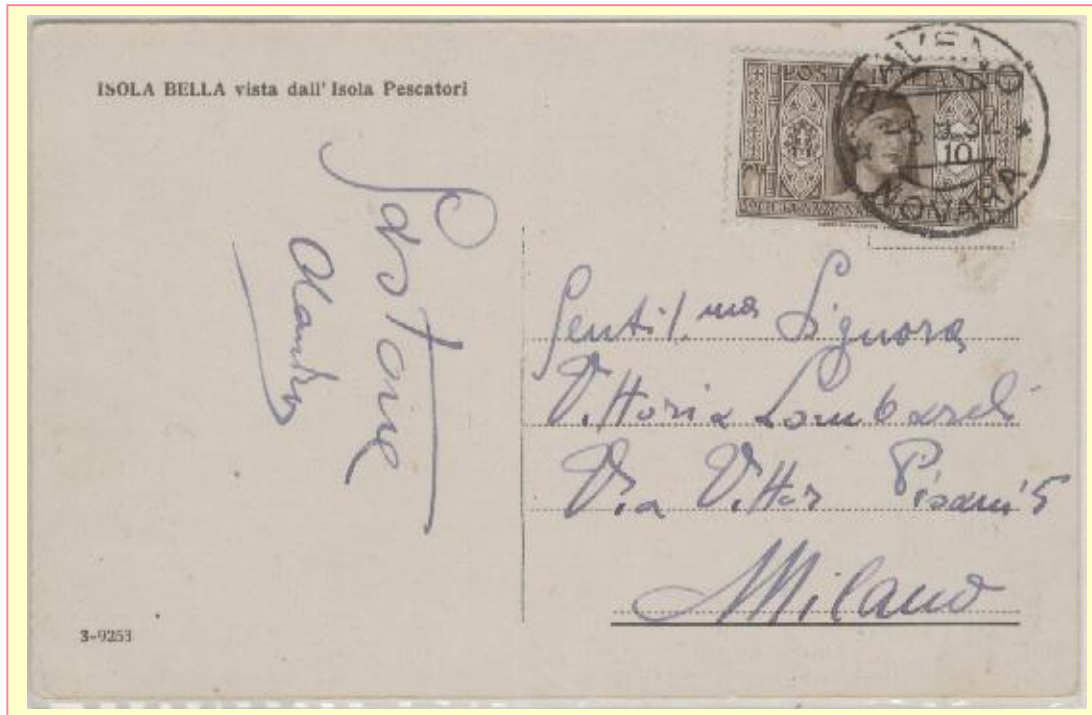 ISOLA BELLA vista dall' Isola Pescatori
POSTE ITALIANE
10
NOVARA
Pastore
Gentil.ma Signora
Vittoria Lombardi
Via Vittor Pisani 5
Milano
3-9253